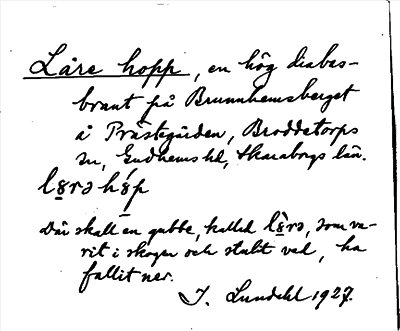 Låre hopp, en hög diabas-
brant på Brunnhemsberget
å Prästgården, Broddetorps
sn, Gudhems hd, Skaraborgs län.
lo̱rə ho̱p
Där skall en gubbe, kallad lo̱rə, som va-
rit i skogen och stulit ved, ha
fallit ner.
I. Lundahl 1927.